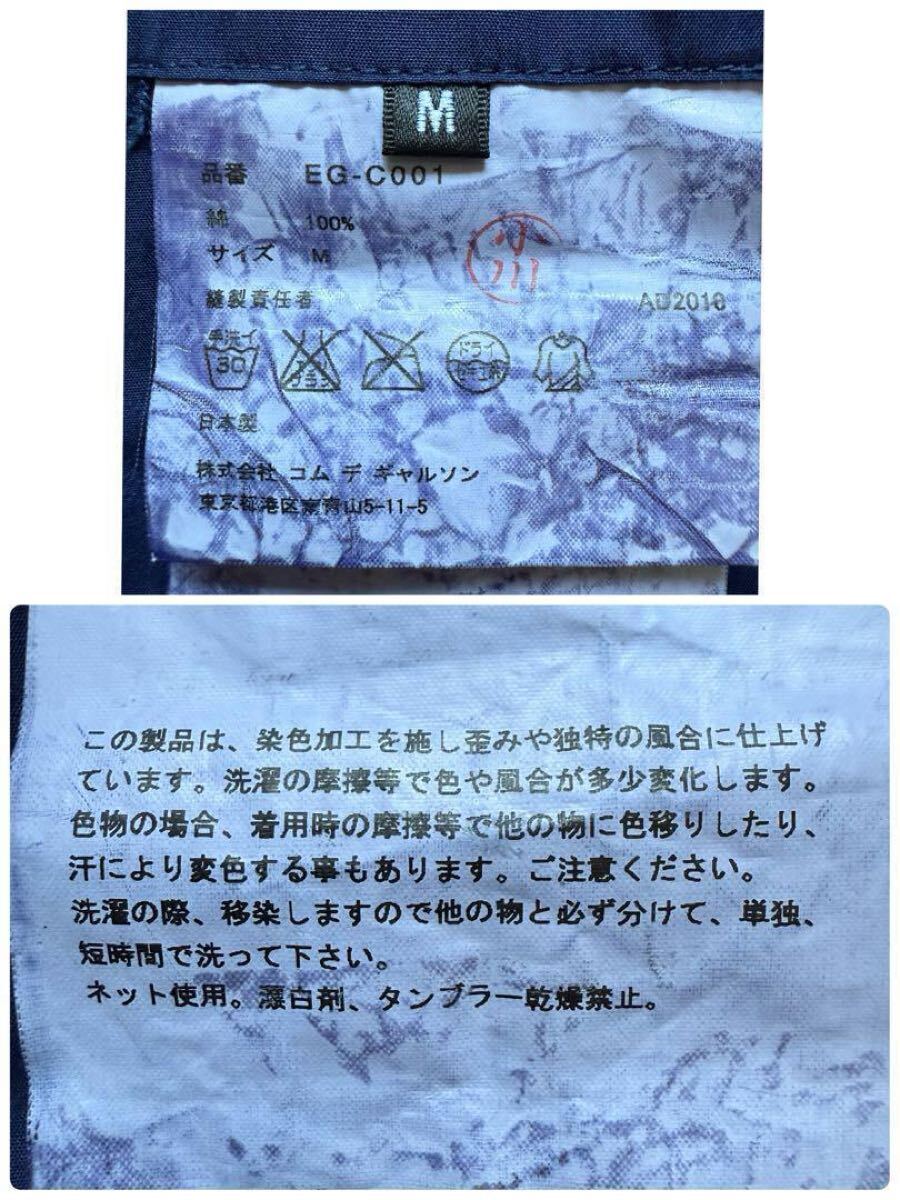 M
品番 EG-C001
綿 100%
サイズ M
小川
縫製責任者 AD2016
手洗イ
30
エンソサラシ
ドライ
セキユ系
日本製
株式会社 コム デ ギャルソン
東京都港区南青山5-11-5
この製品は、染色加工を施し歪みや独特の風合に仕上げ
ています。洗濯の摩擦等で色や風合が多少変化します。
色物の場合、着用時の摩擦等で他の物に色移りしたり、
汗により変色する事もあります。ご注意ください。
洗濯の際、移染しますので他の物と必ず分けて、単独、
短時間で洗って下さい。
ネット使用。漂白剤、タンブラー乾燥禁止。